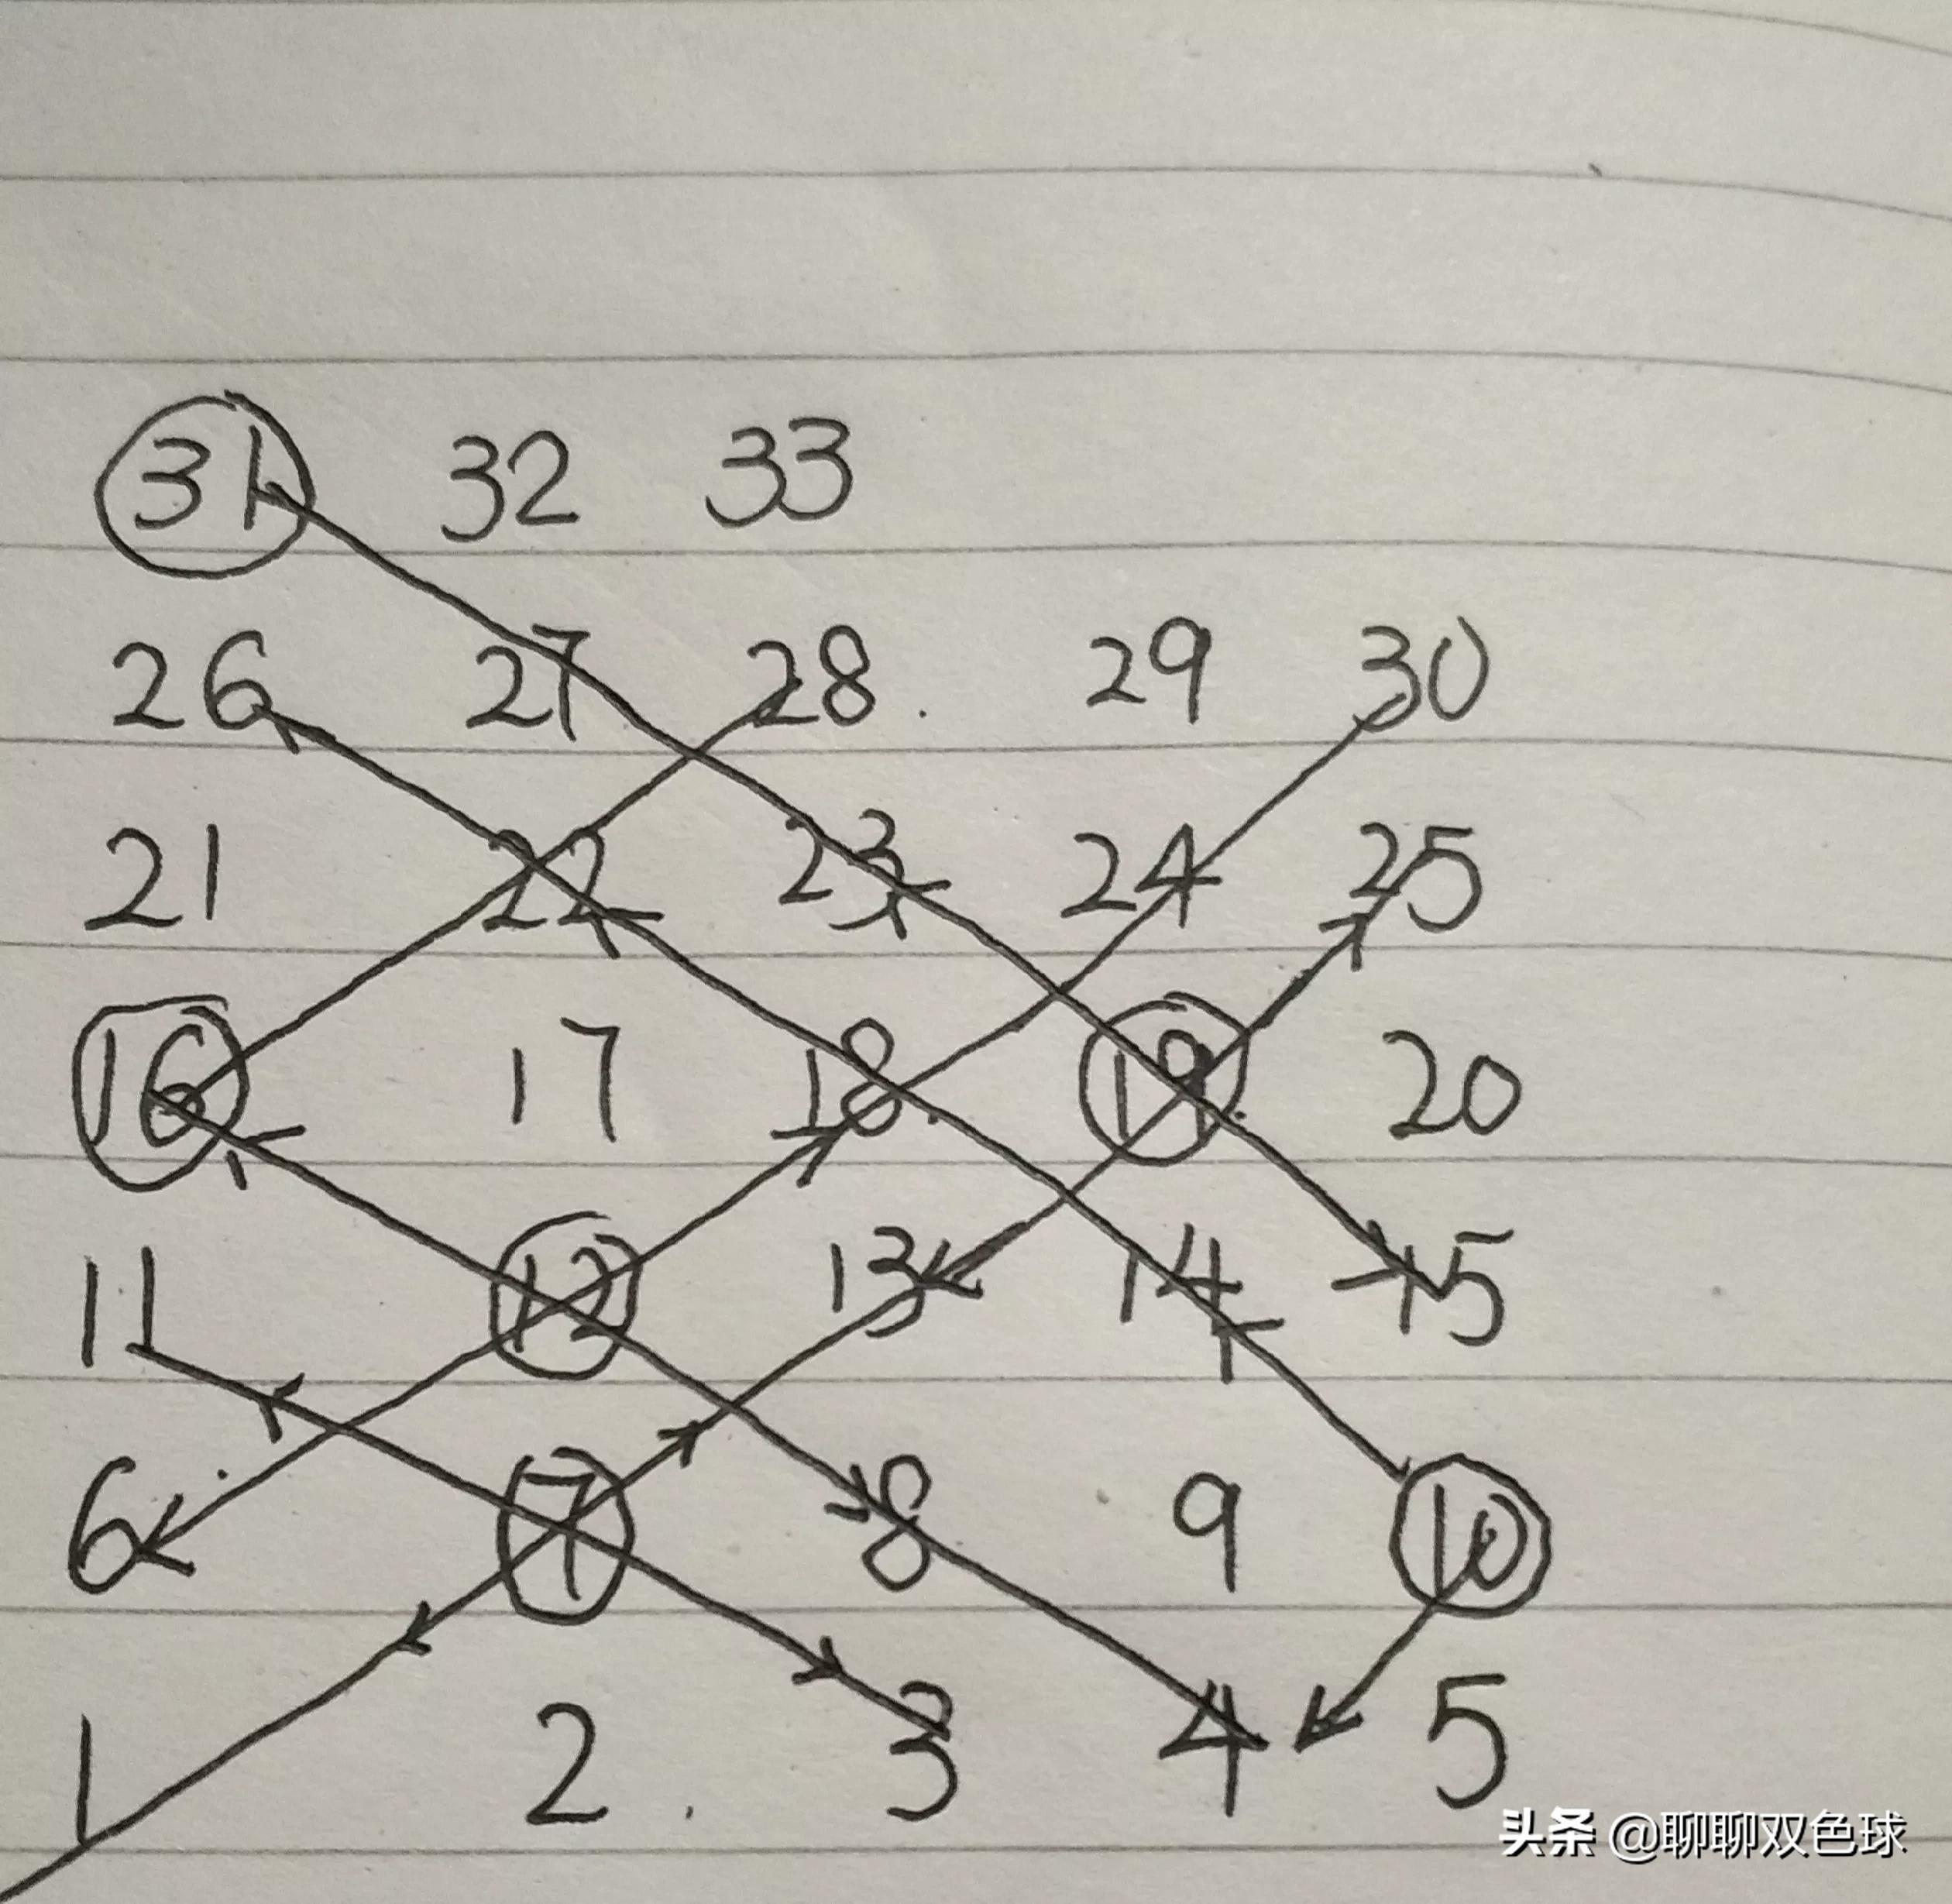 31 32 33
26 27 28 29 30
21 22 23 24 25
16 17 18 19 20
11 12 13 14 15
6 7 8 9 10
1 2 3 4 5
头条 @聊聊双色球